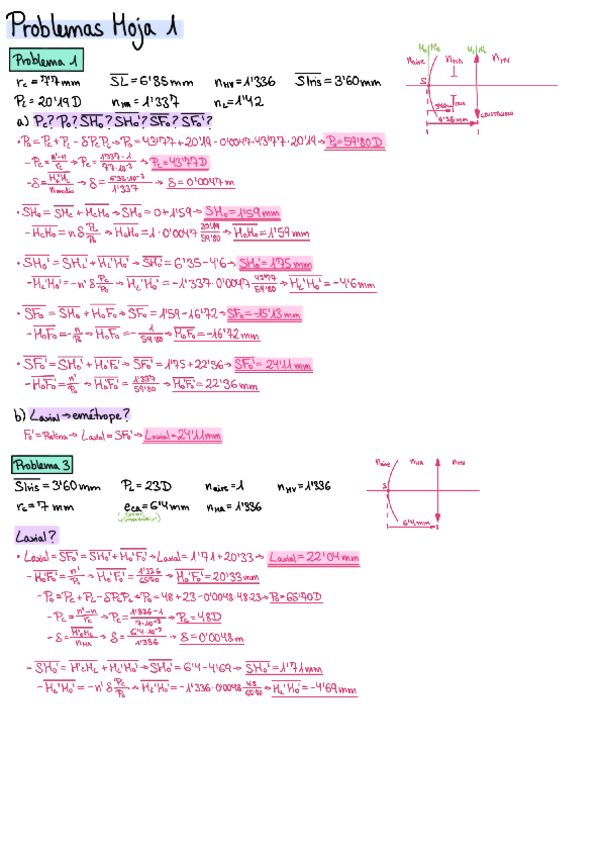 Problemas Hoja 1
Problema 1
rc = 7'7 mm SL = 6'35 mm nHV = 1'336 SIris = 3'60 mm
PL = 20'19 D nHA = 1'337 nL = 1'42
a) Pc? Po? SHo? SHo'? SFo? SFo'?
• Po = Pc + PL - δPcPL → Po = 43'77 + 20'19 - 0'0047·43'77·20'19 → Po = 59'80 D
- Pc = n'-n / rc → Pc = 1'337-1 / 7'7·10⁻³ → Pc = 43'77 D
- δ = Hc'HL / nmedio → δ = 6'35·10⁻³ / 1'337 → δ = 0'0047 m
• SHo = SHc + HcHo → SHo = 0 + 1'59 → SHo = 1'59 mm
- HcHo = n δ PL/Po → HcHo = 1·0'0047 20'19/59'80 → HcHo = 1'59 mm
• SHo' = SHL' + HL'Ho' → SHo' = 6'35 - 4'6 → SHo' = 1'75 mm
- HL'Ho' = -n' δ Pc/Po → HL'Ho' = -1'337·0'0047 43'77/59'80 → HL'Ho' = -4'6 mm
• SFo = SHo + HoFo → SFo = 1'59 - 16'72 → SFo = -15'13 mm
- HoFo = - n/Po → HoFo = - 1/59'80 → HoFo = -16'72 mm
• SFo' = SHo' + Ho'Fo' → SFo' = 1'75 + 22'36 → SFo' = 24'11 mm
- Ho'Fo' = n'/Po → Ho'Fo' = 1'337/59'80 → Ho'Fo' = 22'36 mm
b) Laxial → emétrope?
Fo' = Retina → Laxial = SFo' → Laxial = 24'11 mm
Problema 3
SIris = 3'60 mm PL = 23 D naire = 1 nHV = 1'336
rc = 7 mm eCA = 6'4 mm nHA = 1'336
Laxial?
• Laxial = SFo' = SHo' + Ho'Fo' → Laxial = 1'71 + 20'33 → Laxial = 22'04 mm
- Ho'Fo' = n'/Po → Ho'Fo' = 1'336/65'70 → Ho'Fo' = 20'33 mm
- Po = Pc + PL - δPcPL → Po = 48 + 23 - 0'0048·48·23 → Po = 65'70 D
- Pc = n'-n / rc → Pc = 1'336-1 / 7·10⁻³ → Pc = 48 D
- δ = Hc'HL / nHA → δ = 6'4·10⁻³ / 1'336 → δ = 0'0048 m
- SHo' = Hc'HL + HL'Ho' → SHo' = 6'4 - 4'69 → SHo' = 1'71 mm
- HL'Ho' = -n' δ Pc/Po → HL'Ho' = -1'336·0'0048 48/65'70 → HL'Ho' = -4'69 mm
naire nHA nHV
S
6'4 mm